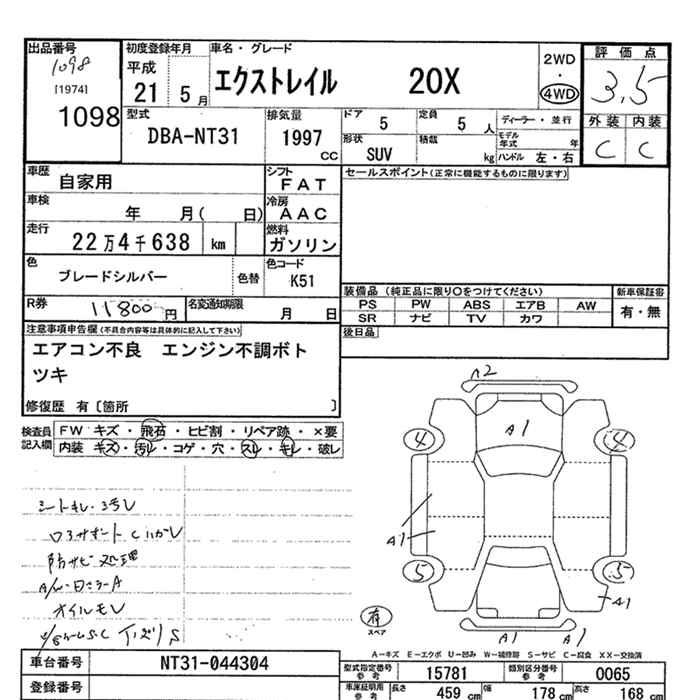 出品番号
1098
[1974]
1098
初度登録年月
平成
21 5 月
車名・グレード
エクストレイル 20X
2WD
・
4WD
評価点
3.5
外装 内装
C C
型式
DBA-NT31
排気量
1997 cc
ドア 5
定員 5 人
形状 SUV
積載 kg
ディーラー・並行
モデル年式 年
ハンドル 左・右
車歴 自家用
シフト FAT
車検 年 月( 日)
冷房 AAC
走行 22万4千638 km
燃料 ガソリン
色 ブレードシルバー 色替
色コード K51
R券 11800円
名変通知期限 月 日
セールスポイント(正常に機能するものに限ります)
装備品 (純正品に限り○をつけてください)
新車保証書
PS PW ABS エアB AW
SR ナビ TV カワ
有・無
後日品
注意事項申告欄(不具合内容等は具体的に記入して下さい)
エアコン不良 エンジン不調ボト
ツキ
修復歴 有〔箇所 〕
検査員記入欄
FW キズ・飛石・ヒビ割・リペア跡・×要
内装 キズ・汚レ・コゲ・穴・スレ・キレ・破レ
シートキレ・
防サビ処理
オイルモレ
A2
A1
4
4
A1
5
5
A1
有
スペア
A1 A1
A－キズ E－エクボ U－凹み W－補修跡 S－サビ C－腐食 XX－交換済
車台番号 NT31-044304
登録番号
型式指定番号 参考 15781
類別区分番号 参考 0065
車庫証明用 参考 長さ 459 cm 幅 178 cm 高さ 168 cm